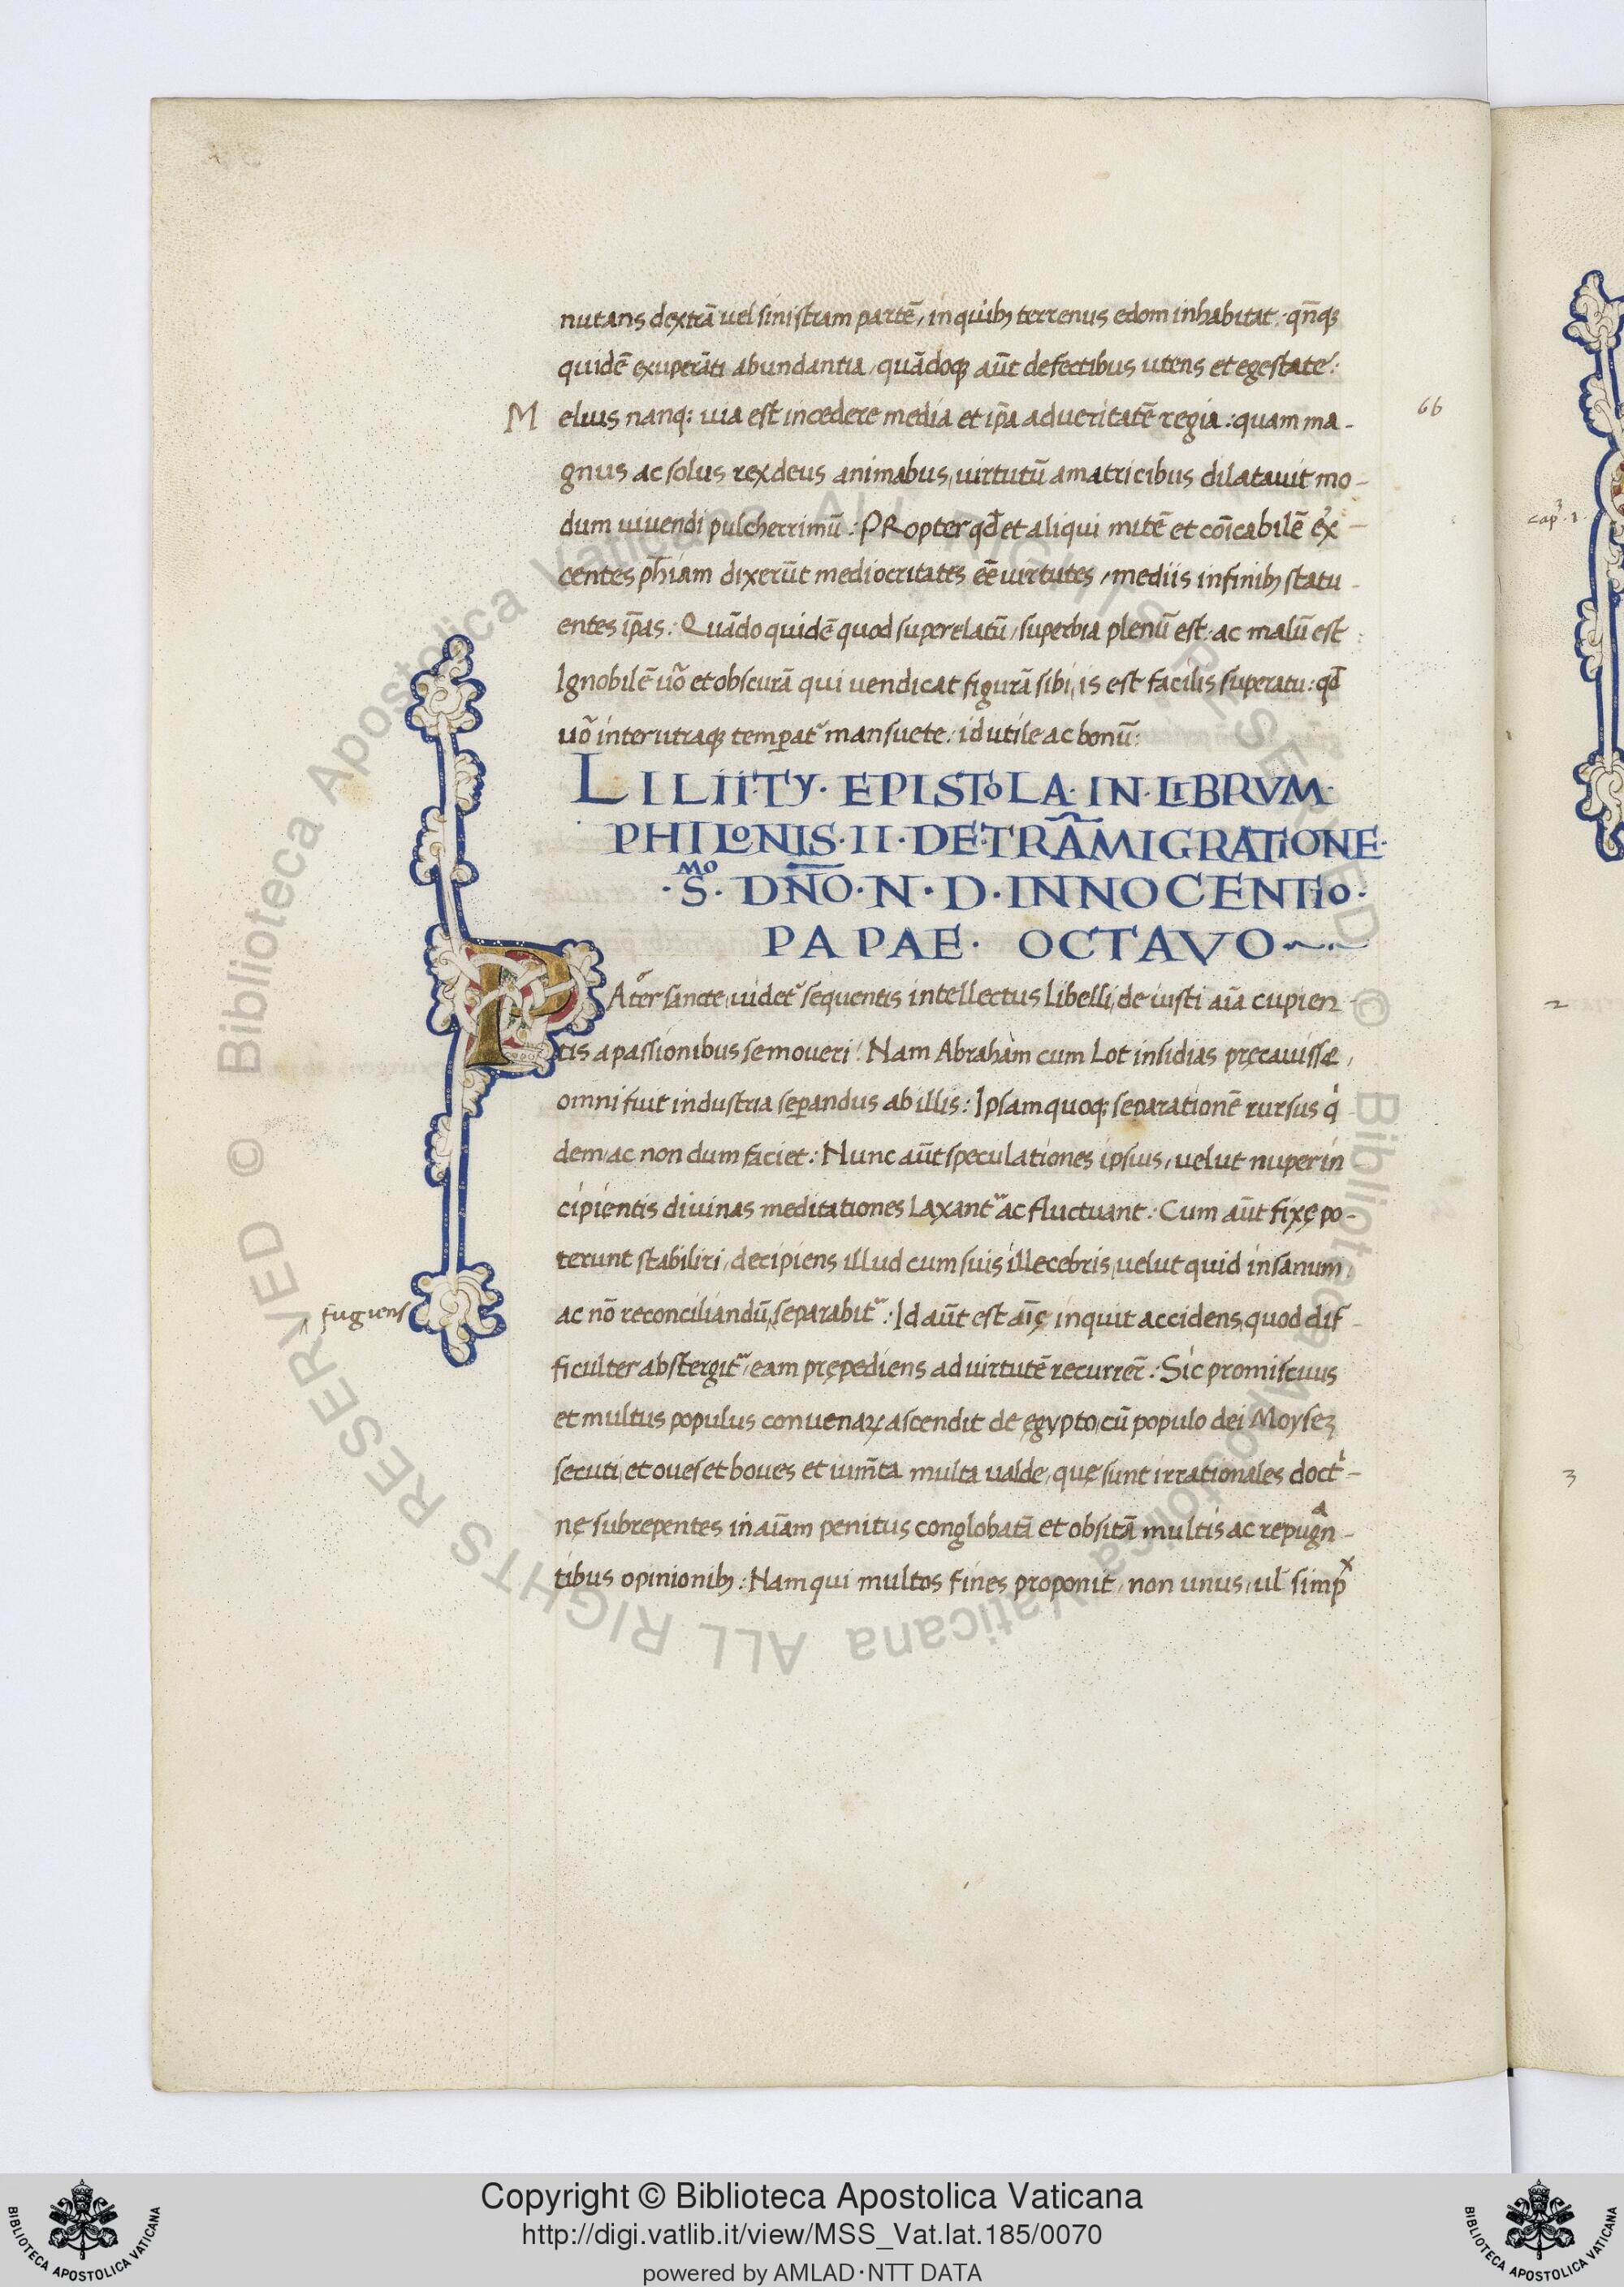 nutans dextrā uel sinistram partē, in quibꝫ terrenus edom inhabitat. qn̄qꝫ
quidē exuperāti abundantia, quādoqꝫ aūt defectibus utens et egestate.
M elius nanqꝫ uia est incedere media et ip̄a ad ueritatē regia: quam ma-
gnus ac solus rex deus animabus, uirtutū amatricibus dilatauit mo-
dum uiuendi pulcherrimū: PRopter qd̄ et aliqui mitē et cōicabilē ex-
centes ph̄iam dixerūt mediocritates eē uirtutes, mediis in finibꝫ statu-
entes ip̄as: Quādo quidē quod superelatū, superbia plenū est. ac malū est
Ignobilē uō et obscurā qui uendicat figurā sibi, is est facilis superatu: qd̄
uō inter utraqꝫ temperatʳ mansuete. id utile ac bonū:
LILII·TY· EPISTOLA· IN· LIBRVM·
PHILONIS· II· DE·TRĀMIGRATIONE·
·S^MO· DÑO· N· D· INNOCENTIO·
PAPAE· OCTAVO
PAter sancte, uidetʳ sequentis intellectus libelli, de iusti aīa cupien-
tis a passionibus semoueri: Nam Abrahàm cum Lot insidias pręcauisse,
omni fuit industria sep̄andus ab illis: Ipsam quoqꝫ separationē rursus qͥ
dem, ac non dum faciet: Nunc aūt speculationes ipsius, uelut nuper in
cipientis diuinas meditationes laxantʳ ac fluctuant: Cum aūt fixę po-
terunt stabiliri, decipiens illud cum suis illecebris, uelut quid insanum
fugiens
ac nō reconciliandū, separabitʳ: Id aūt est aīę inquit accidens, quod dif-
ficulter abstergitʳ, eam prępediens ad uirtutē recurrer̄: Sic promiscuus
et multus populus conuenaꝝ ascendit de ęgypto, cū populo dei Moysez
secuti, et oues et boues et ium̄ta multa ualde, quę sunt irrationales doctͥ-
nę subrepentes in aīam penitus conglobatā et obsitā multis ac repugᵃn-
tibus opinionibꝫ: Nam qui multos fines proponit, non unus, ul̄ simpˣ
66
cap. 1.
2
3